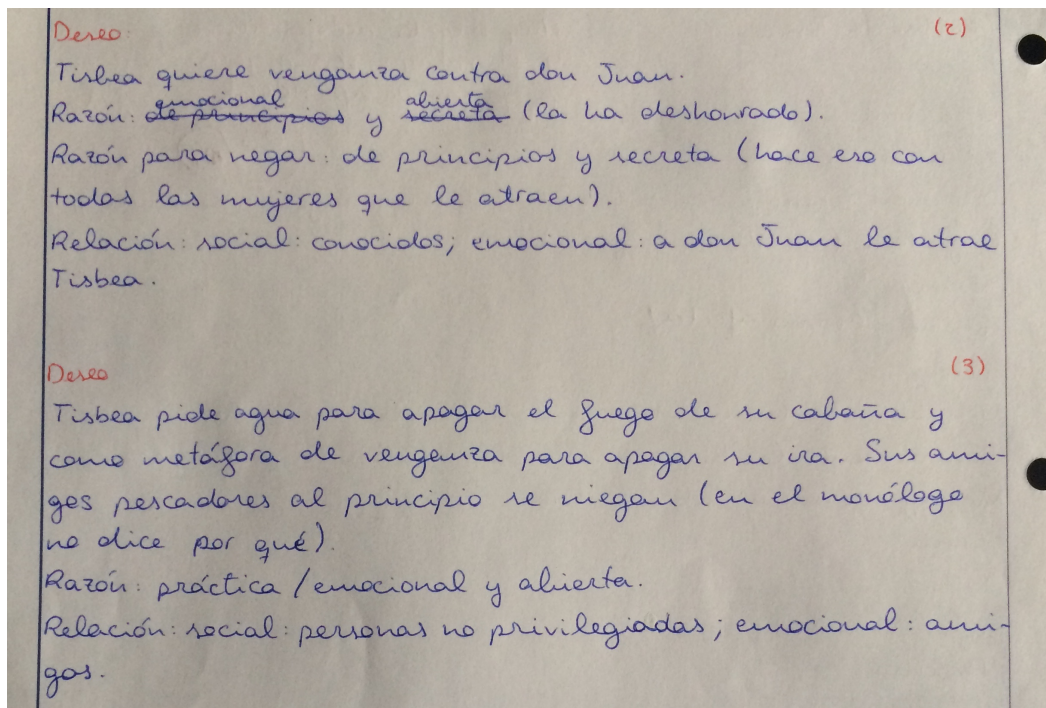 Deseo: (2)
Tisbea quiere venganza contra don Juan.
emocional abierta
Razón: de principios y secreta (la ha deshonrado).
Razón para negar: de principios y secreta (hace eso con
todas las mujeres que le atraen).
Relación: social: conocidos; emocional: a don Juan le atrae
Tisbea.
Deseo (3)
Tisbea pide agua para apagar el fuego de su cabaña y
como metáfora de venganza para apagar su ira. Sus ami-
gos pescadores al principio se niegan (en el monólogo
no dice por qué).
Razón: práctica / emocional y abierta.
Relación: social: personas no privilegiadas; emocional: ami-
gos.